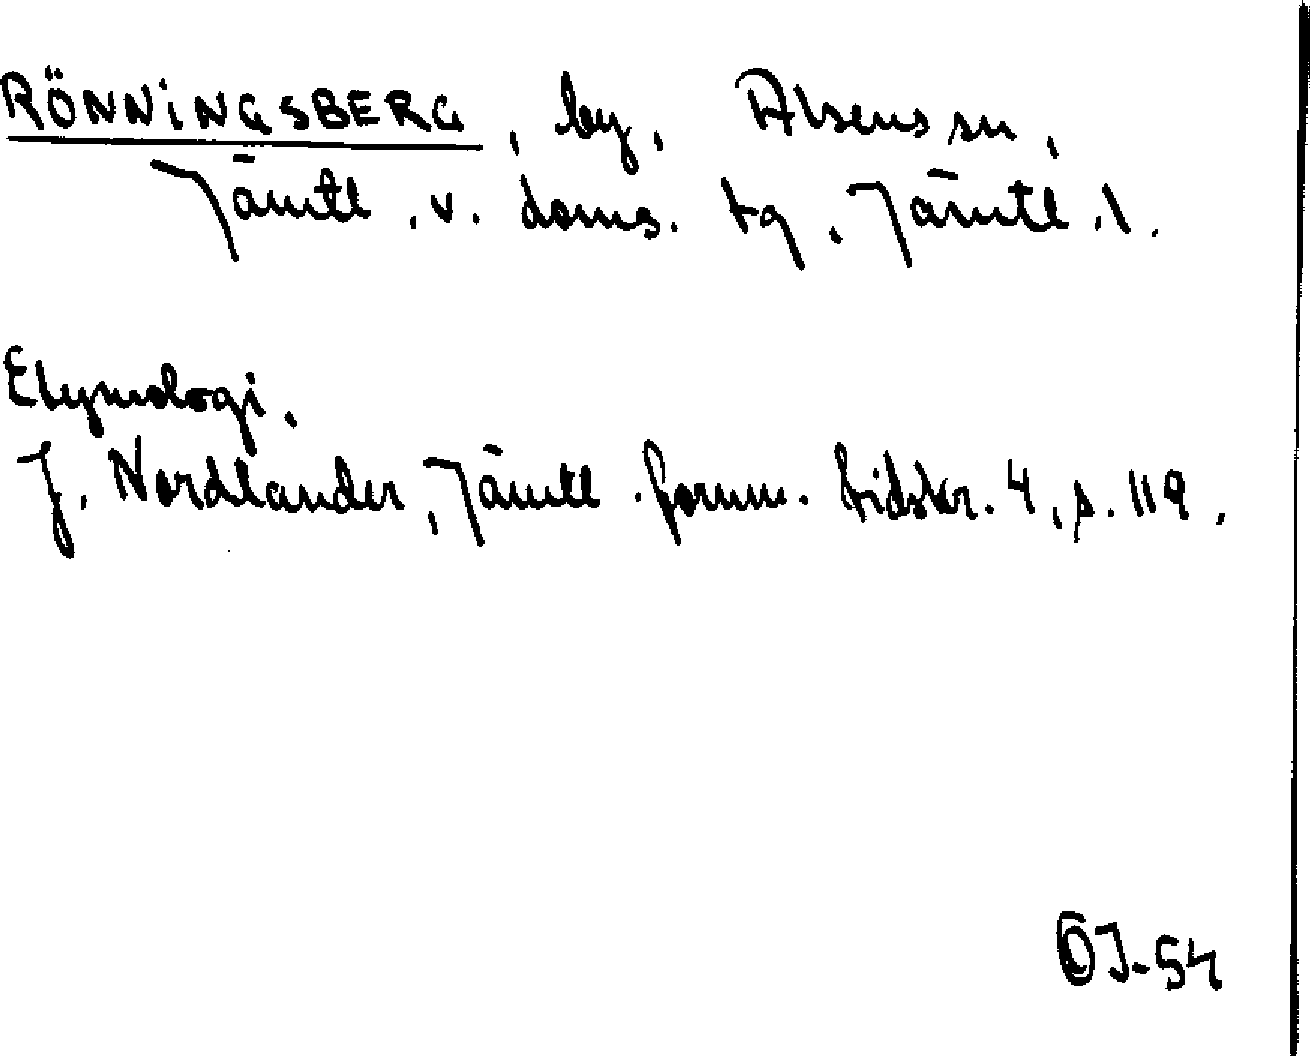 RÖNNINGSBERG, by, Alsens sn,
Jämtl. v. doms. tg, Jämtl. l.
Etymologi.
J. Nordlander, Jämtl. fornm. tidskr. 4, s. 119.
ÖJ-54